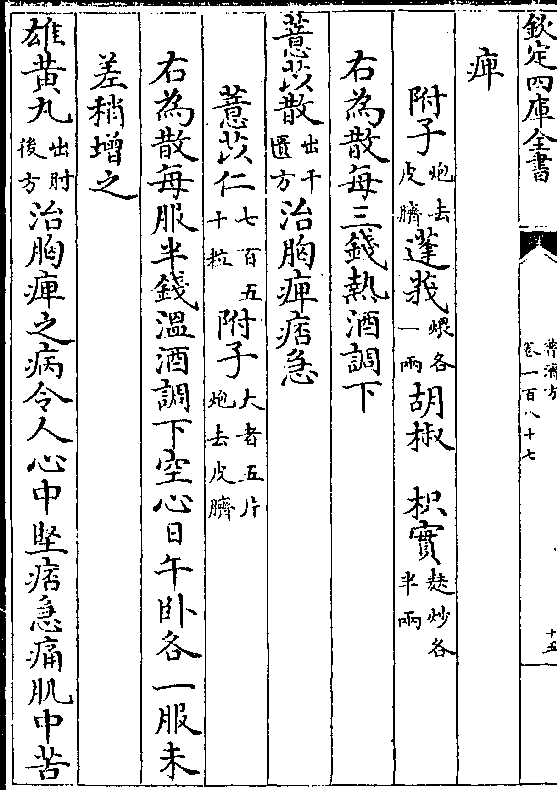 欽定四庫全書
普濟方
卷一百八十七
十五
痺
附子炮去皮臍蓬莪煨各一兩胡椒 枳實麸炒各半兩
右為散每三錢熱酒調下
薏苡散出千匱方治胸痺痞急
薏苡仁七百五十粒附子大者五片炮去皮臍
右為散每服半錢溫酒調下空心日午卧各一服未
差稍增之
雄黄丸出肘後方治胸痺之病令人心中堅痞急痛肌中苦